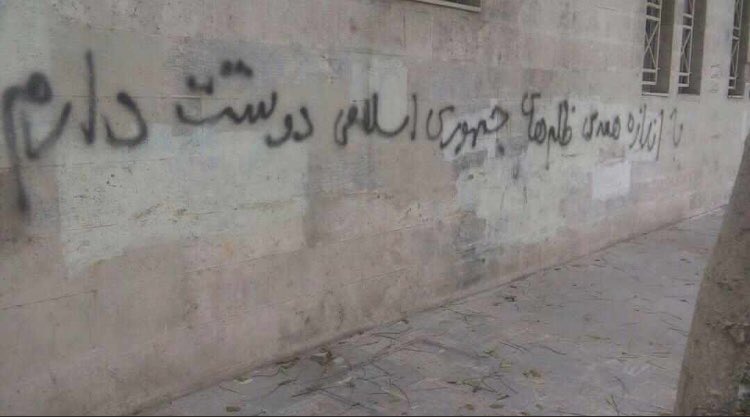 به اندازه همه‌ی ظلم‌های جمهوری اسلامی دوستت دارم